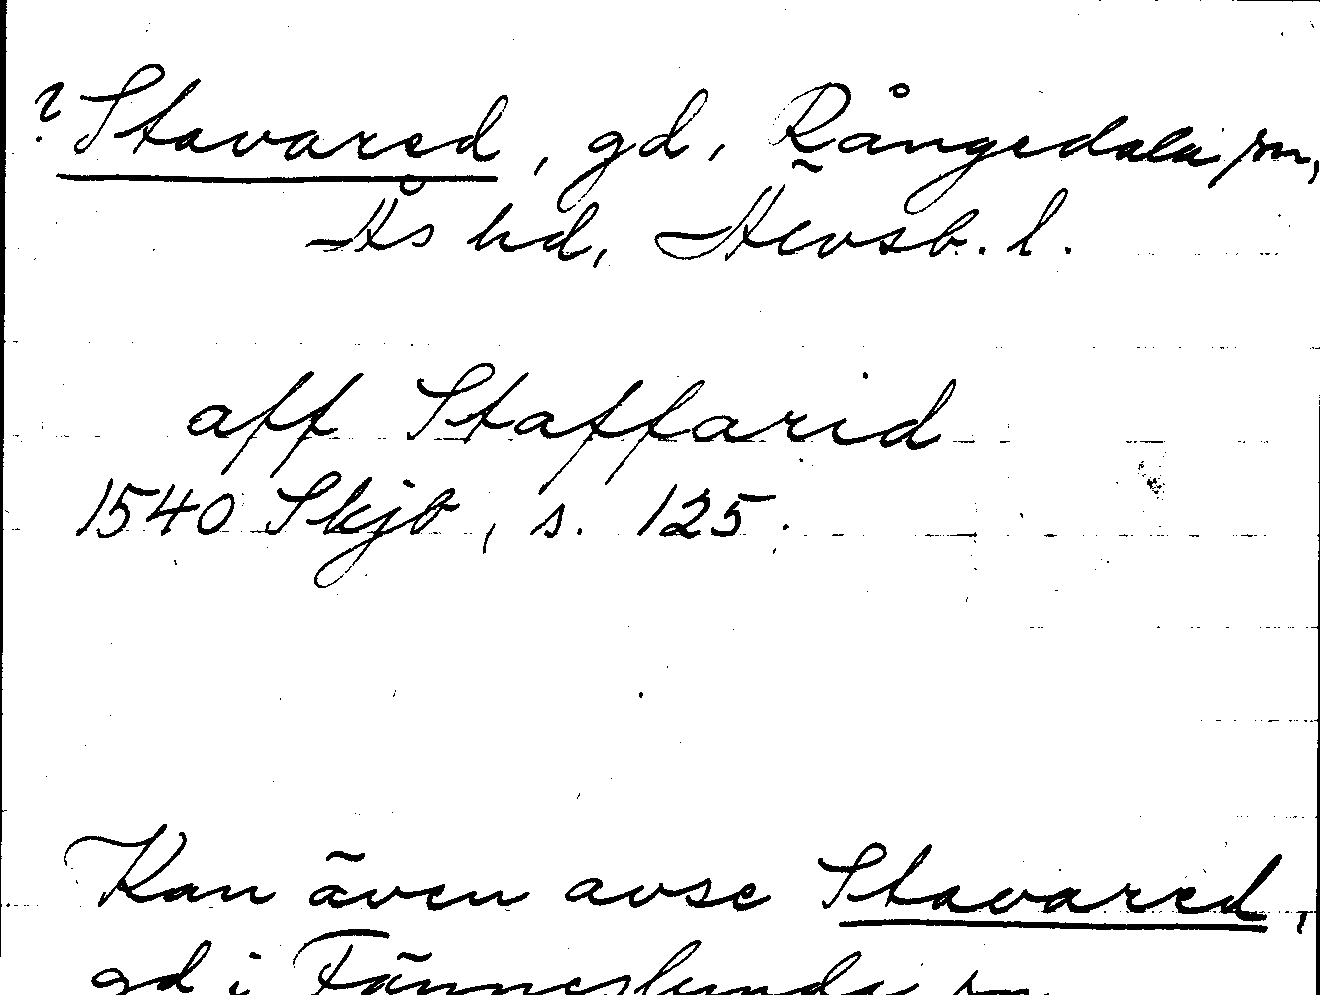 ? Stavared, gd, Rångedala sn,
Ås hd, Älvsb. l.
aff Staffarid
1540 Skjb, s. 125.
Kan även avse Stavared,
gd i Fänneslunda sn